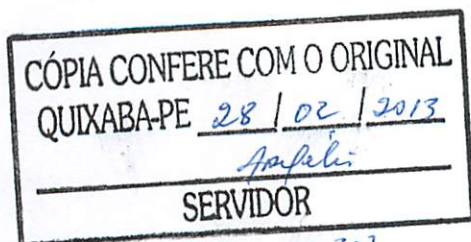 CÓPIA CONFERE COM O ORIGINAL
QUIXABA-PE 28 / 02 / 2013
SERVIDOR